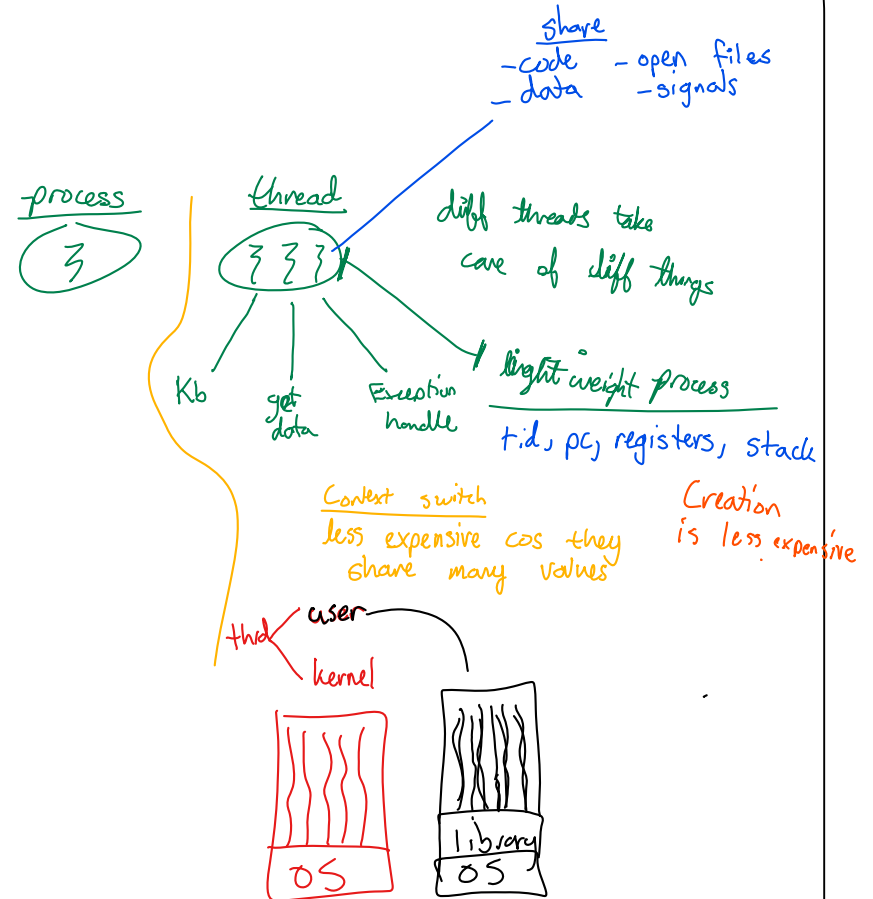 share
- code - open files
- data - signals
process
thread
diff threads take
care of diff things
Kb
get data
Exception handle
light weight process
tid, pc, registers, stack
Context switch
less expensive cos they
share many values
Creation
is less expensive
thrd
user
kernel
OS
library
OS